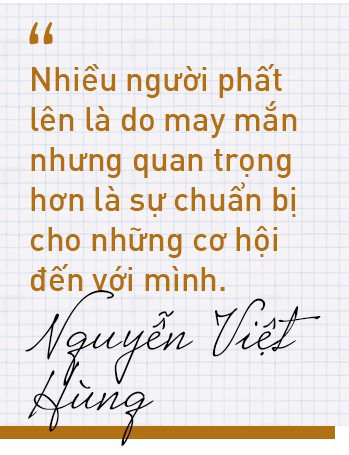 “
Nhiều người phất
lên là do may mắn
nhưng quan trọng
hơn là sự chuẩn bị
cho những cơ hội
đến với mình.
Nguyễn Việt
Hùng